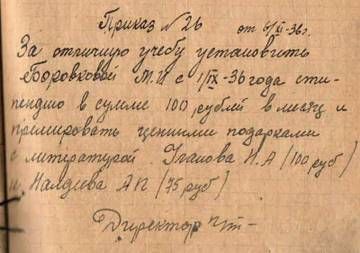 Приказ № 26 от 6/XI-36г.
За отличную учебу установить
Боровковой М.И с 1/IX-36 года сти-
пендию в сумме 100 рублей в месяц и
премировать ценными подарками
с литературой. Уганова И.А (100 руб)
и Малдеева АП (75 руб)
Директор